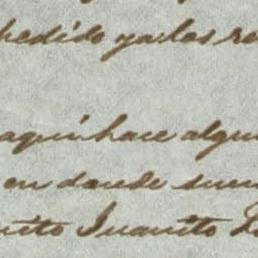 pedido ya las re
aqui hace algu
en donde suen
nito Juanito L